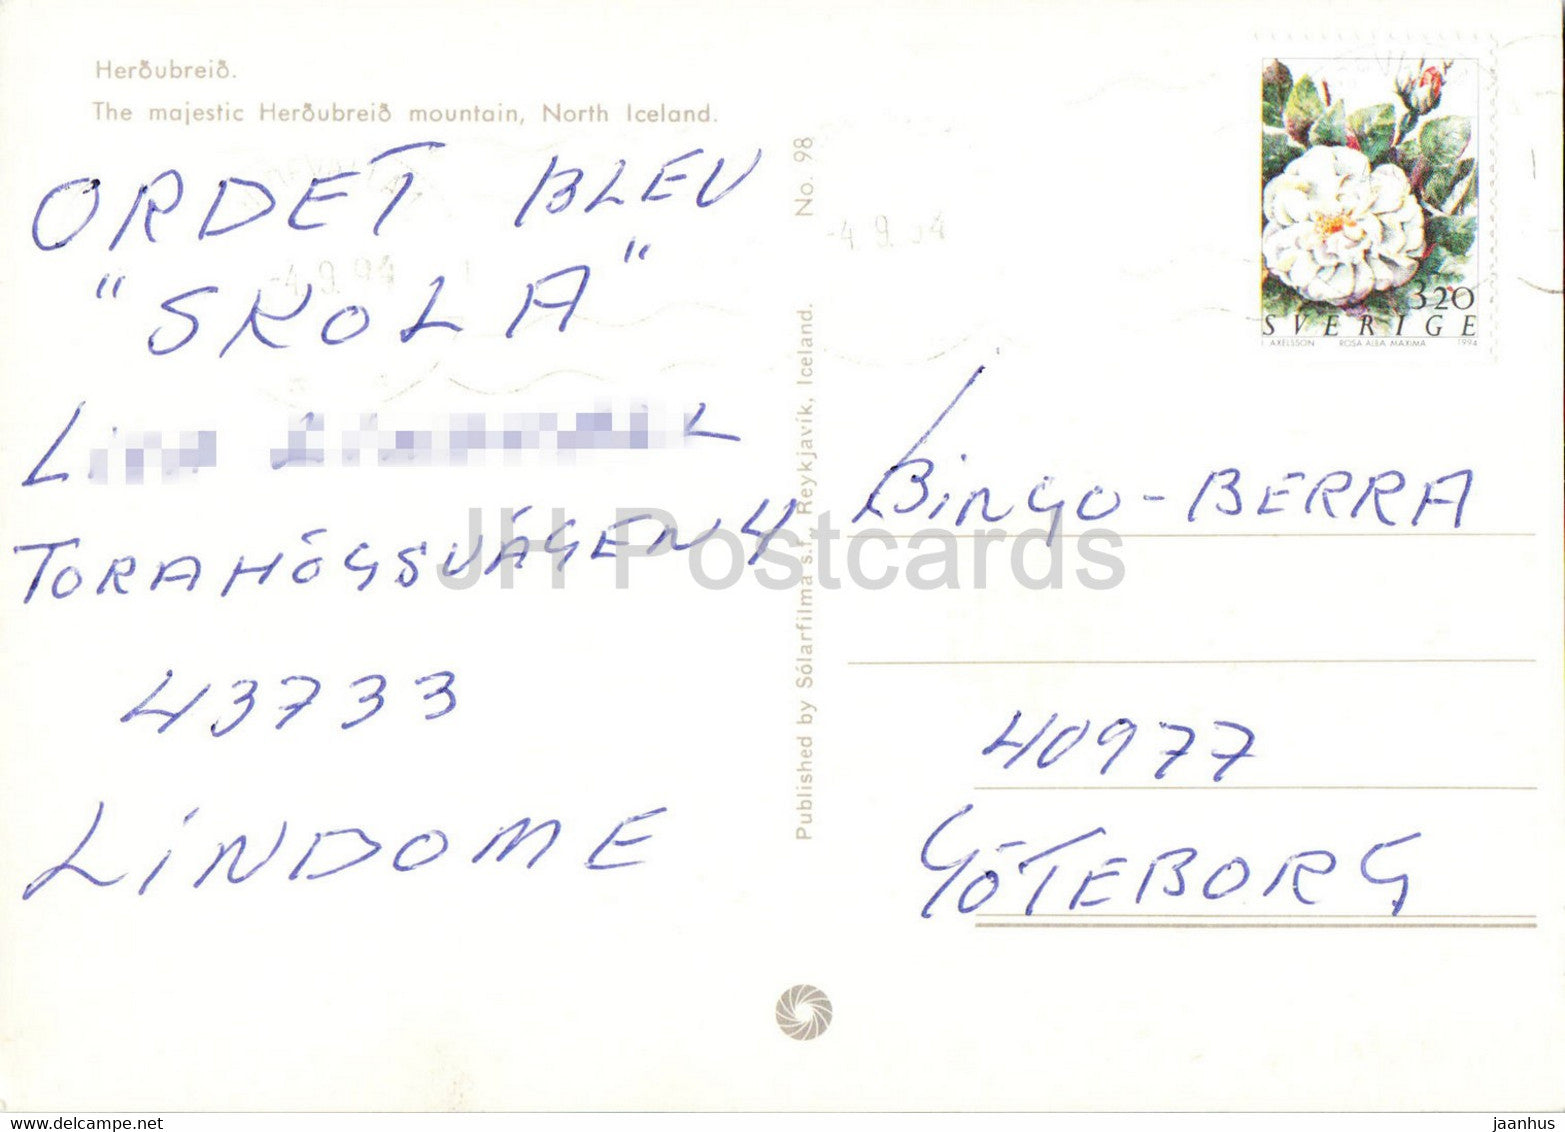 Herðubreið.
The majestic Herðubreið mountain, North Iceland.
ORDET BLEV
"SKOLA"
TORAHÖGSVÄGEN 4
43733
LINDOME
No. 98
Published by Sólarfilma s.f., Reykjavík, Iceland.
-4.9.94
-4.9.94
320
SVERIGE
AXELSSON ROSA ALBA MAXIMA 1994
BINGO-BERRA
40977
GÖTEBORG
JH Postcards
www.delcampe.net
jaanhus